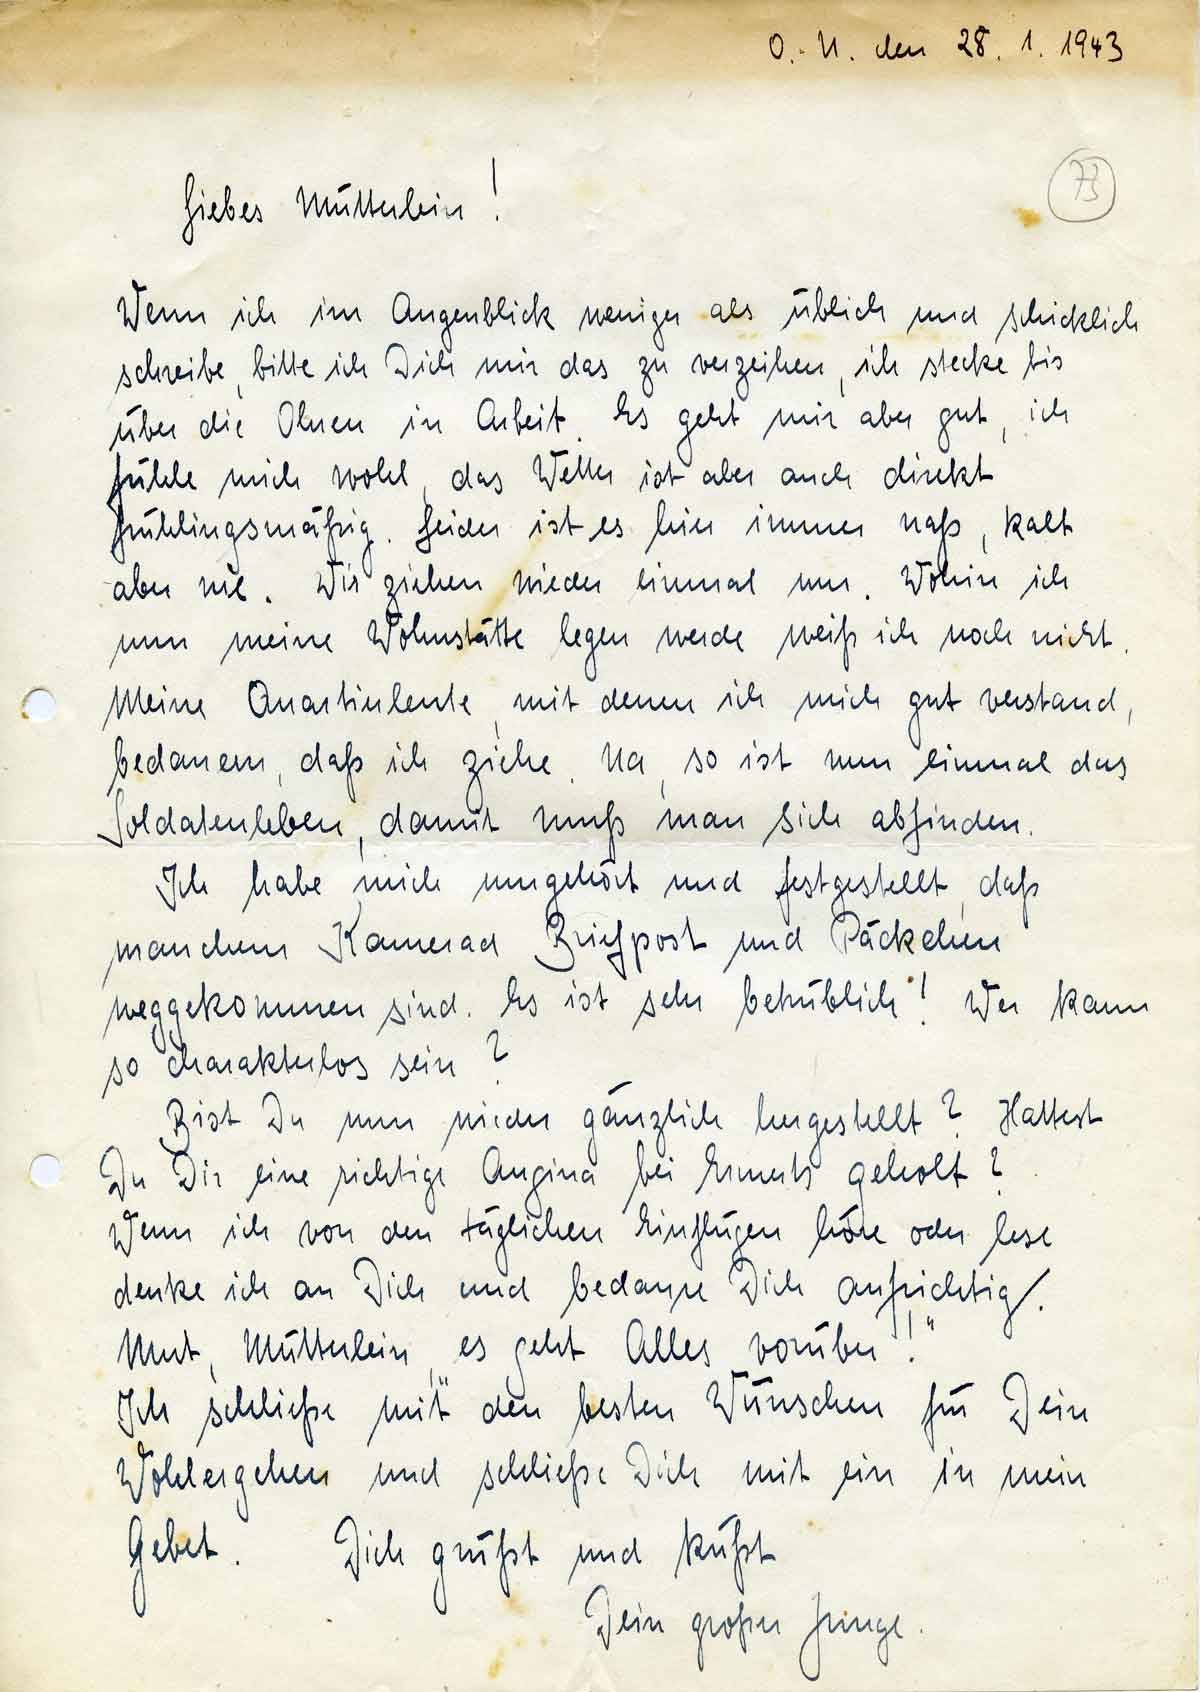 O.-U. den 28. 1. 1943
73
Liebes Mütterlein!
Wenn ich im Augenblick weniger als üblich und schicklich
schreibe, bitte ich Dich mir das zu verzeihen, ich stecke bis
über die Ohren in Arbeit. Es geht mir aber gut, ich
fühle mich wohl, das Wetter ist aber auch direkt
frühlingsmäßig. Leider ist es hier immer naß, kalt
aber nie. Wir ziehen wieder einmal um. Wohin ich
nun meine Wohnstätte legen werde weiß ich noch nicht.
Meine Quartierleute, mit denen ich mich gut verstand,
bedauern, daß ich ziehe. Na, so ist nun einmal das
Soldatenleben, damit muß man sich abfinden.
Ich habe mich umgehört und festgestellt, daß
manchem Kamerad Briefpost und Päckchen
weggekommen sind. Es ist sehr betrüblich! Wer kann
so charakterlos sein?
Bist Du nun wieder gänzlich hergestellt? Hattest
Du Dir eine richtige Angina bei geholt?
Wenn ich von den täglichen Einflügen höre oder lese
denke ich an Dich und bedaure Dich aufrichtig.
Mut, Mütterlein, „es geht Alles vorüber!“
Ich schließe mit den besten Wünschen für Dein
Wohlergehen und schließe Dich mit ein in mein
Gebet. Dich grüßt und küßt
Dein großer Junge.